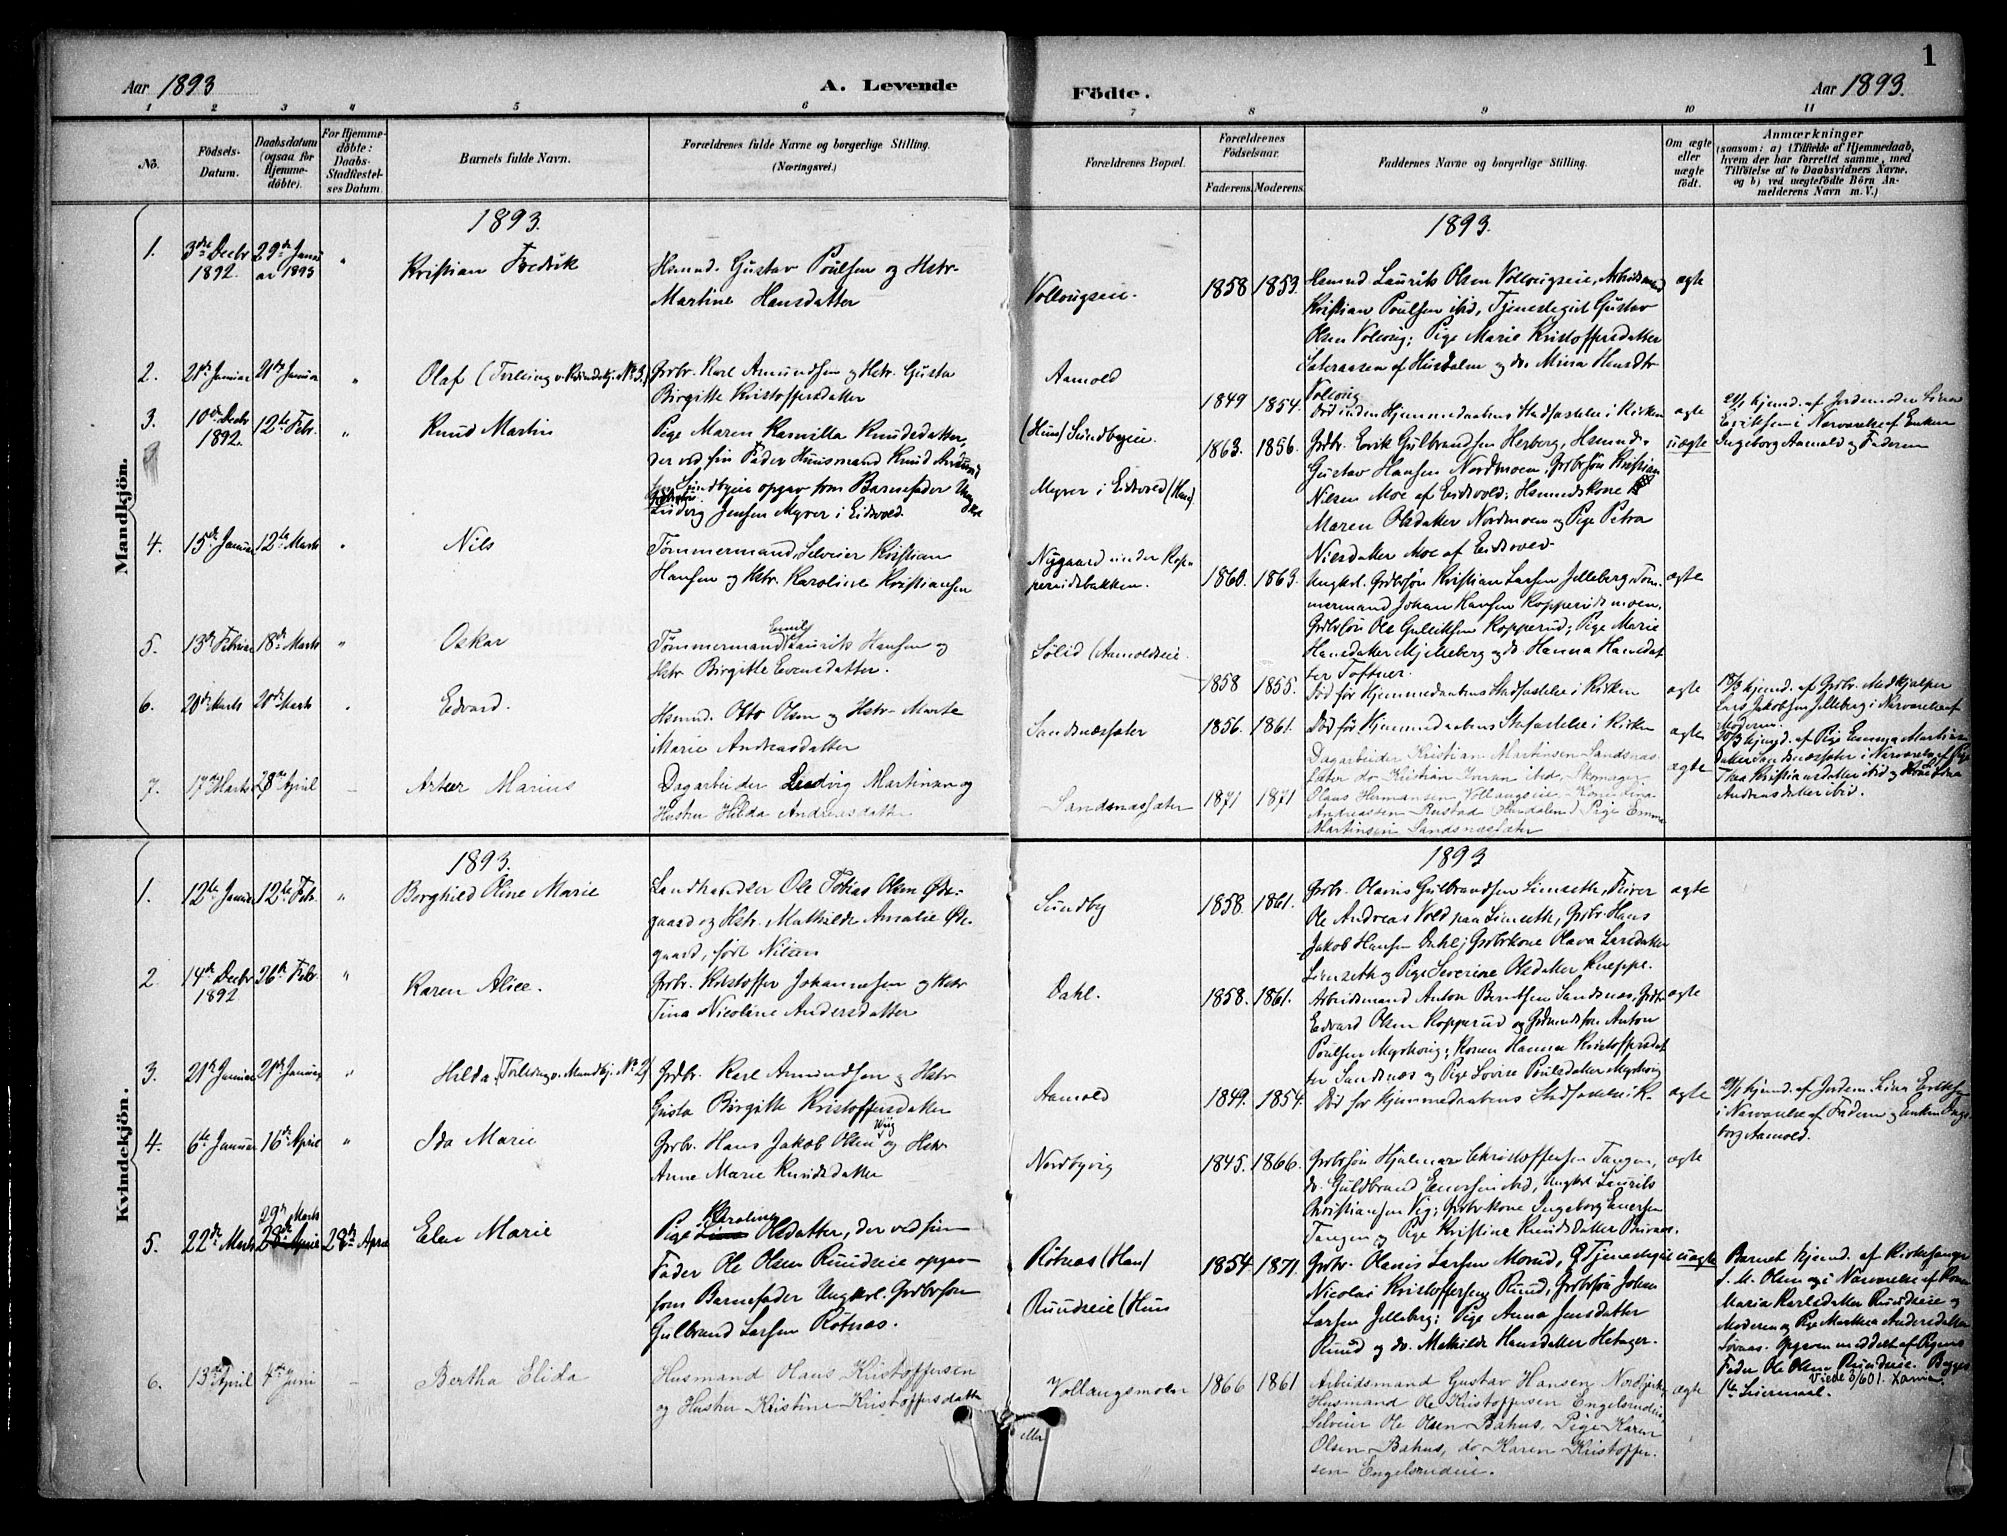 1
Aar 1893
A. Levende
Födte.
Aar 1893.
1 2 3 4 5 6 7 8 9 10 11
No.
Födsels-
Datum.
Daabsdatum
(ogsaa for
Hjemme-
döbte).
For Hjemme-
döbte:
Daabs-
Stadfæstel-
ses Datum.
Barnets fulde Navn.
Forældrenes fulde Navne og borgerlige Stilling.
(Næringsvei.)
Forældrenes Bopæl.
Forældrenes
Födselsaar.
Faderens. Moderens.
Faddernes Navne og borgerlige Stilling.
Om ægte
eller
uægte
födt.
Anmærkninger
(saasom: a) i Tilfælde af Hjemmedaab,
hvem der har forrettet samme, med
Tilföielse af to Daabsvidners Navne,
og b) ved uægtefödte Börn An-
melderens Navn m. V.)
Mandkjön.
1893.
1893.
1.
3die Decbr
1892.
29de Janu
ar 1893
"
Kristian Fredrik
Hsmnd. Gustav Poulsen og Hstr.
Martine Hansdatter
Vollaugseie.
1858 1853.
Hsmnd Laurits Olsen Vollougseie, Arbeidsmand
Kristian Poulsen ibid, Tjenestegut Gustav
Olsen Volloug; Pige Marie Kristoffersdatter
Sæteraasen af Hurdalen og do. Mina Hansdtr
Volloug
ægte
2.
21de Januar
21de Januar
"
Olaf (Tvilling v. Kvindekj. No 3.)
Grdbr. Karl Amundsen og Hstr. Gusta
Birgitte Kristoffersdatter
Aamold
1849 1854.
Død inden Hjemmedaabens Stadfæstelse i Kirken
ægte
21/1 hjemd. af Jordemoder Lina
Eriksen i Nærværelse af Enken
Ingeborg Aamold og Faderen
3.
10de Decbr
1892.
12te Febr.
"
Knud Martin
Pige Maren Kamilla Knudsdatter,
der ved sin Fader Huusmand Knud
Sundbyeie opgav som Barnefader Ungkrl
Jensen Myrer i Eidsvold.
(Hun) Sundbyeie.
Myrer i Eidsvold (Han)
1863. 1856.
Grdbr. Erik Gulbrandsen Herberg, Hsmnd.
Gustav Hansen Nordmoen, Grdbrsøn Kristian
Nilsen Moe af Eidsvold; Hsmndskone
Maren Olsdatter Nordmoen og Pige Petra
Nilsdatter Moe af Eidsvold.
uægte
4.
15de Januar
12te Marts
"
Nils
Tømmermand, Selveier Kristian
Hansen og Hstr. Karoline Kristiansen
Nygaard under Kop-
perudsbakken.
1860. 1863.
Ungkrl. Grdbrsøn Kristian Larsen Jelleberg, Tøm-
mermand Johan Hansen Kopperudsmoen,
Grdbrsøn Ole Gulliksen Kopperud; Pige Marie
Hansdatter Mjelleberg og do Hanna Hansdat-
ter Toftner.
ægte
5.
13de Februar
18de Marts
"
Oskar
Tømmermand Emil Laurits Hansen og
Hstr. Birgitte Evensdatter.
Sølid (Aamoldseie.
1858 1855.
Død før Hjemmedaabens Stadfæstelse i Kirken
ægte
18/3 hjemd. af Grdbr. Medhjælper
Lars Jakobsen Jelleberg i Nærværelse af
Moderen.
6.
20de Marts
20de Marts
"
Edvard.
Hsmnd. Otto Olsen og Hstr. Marte
Marie Andreasdatter
Sandsnæssæter
1856. 1861.
Død før Hjemmedaabens Stadfæstelse i Kirken
ægte
20/3 hjemd. af Pige Emma Martins-
datter Sandsnæssæter i Nærværelse af Pige
Thea Kristiansdatter ibid og
Andreasdatter ibid.
7.
17de Marts
28de April
–
Artur Marius
Dagarbeider Ludvig Martinsen og
Hustru Hilda Andreasdatter
Sandsnæssæter
1871 1871
Dagarbeider Kristian Martinsen Sandsnæs
sæter do Kristian Iversen ibid, Skomager
Olaus Hermansen Vollaugseie – Kone Lina
Andreassen Rustad (Hurdalen) Pige Emma
Martinsen Sandsnæssæter
ægte
Kvindekjön.
1893.
1893
1.
12te Januar
12te Febr.
"
Borghild Oline Marie
Landhandler Ole Tobias Olsen Øde-
gaard og Hstr. Mathilde Amalie Øde-
gaard, født Nilsen
Sundby
1858. 1861.
Grdbr. Olavus Gulbrandsen Limseth, Furer
Ole Andreas Vold paa Limseth, Grdbr. Hans
Jakob Hansen Dahl; Grdbrkone Olava Larsdatter
Limseth og Pige Severine Olsdatter Kneppe.
ægte
2.
14de Decbr
1892
26de Febr.
"
Karen Alice.
Grdbr. Kristoffer Johannesen og Hstr
Tina Nicoline Andersdatter
Dahl.
1858. 1861.
Arbeidsmand Anton Berntsen Sandsnæs, Grdbr.
Edvard Olsen Kopperud og Grdmandssøn Anton
Poulsen Myrhoug; Konen Hanna Kristoffersdat-
ter Sandsnæs og Pige Lovise Poulsdatter Myrhoug
ægte
3.
21de Januar
21de Januar
"
Hilda. (Tvilling v. Mandkj. No 2)
Grdbr. Karl Amundsen og Hstr
Gusta Birgitte Kristoffersdatter
Aamold
1849. 1854.
Død før Hjemmedaabens Stadfæstelse i K.
ægte
21/1 hjemd. af Jordem. Lina Eriksen
i Nærværelse af Faderen og Enken Inge-
borg Aamold.
4.
6te Januar
16de April
"
Ida Marie
Grdbr. Hans Jakob Olsen Wiig og Hstr
Anne Marie Knudsdatter
Nordbyvig
1845. 1866.
Grdbrsøn Hjalmar Christoffersen Tangen,
do. Guldbrand Enersen ibid, Ungkrl. Laurits
Christiansen Vig; Grdbrkone Ingeborg Enersen
Tangen og Pige Kristine Knudsdatter
ægte
5.
22de Marts
29de Marts
28de April
28de April
Elen Marie
Pige Karoline Olsdatter, der ved sin
Fader Ole Olsen Ruudseie opgav
som Barnefader Ungkrl. Grdbrsøn
Gulbrand Larsen Røtnæs.
Røtnæs (Han)
Ruudseie (Hun
1854. 1871.
Grdbr. Olavis Larsen Morud, Tjenestegut
Nicolai Kristoffersen Ruud, Grdbrsøn Johan
Larsen Jelleberg; Pige Anna Jensdatter
Ruud og do. Mathilde Hansdatter Hetager.
uægte
Barnet hjemd. af Kirkesanger
S. M. Olsen og i Nærværelse af Konen
Maria Karlsdatter Ruudseie og
Moderen og Pige Marthea Andersdatter
Opgaven meddelt af Pigens
Fader Ole Olsen Ruudseie. Begges
1ste Leiermaal.
6.
13de April
4de Juni
–
Bertha Elida
Husmand Olaus Kristoffersen
og Hustru Kristine Kristoffersdatter
Vollaugsmoen
1866 1861
Arbeidsmand Gustav Hansen Nordbyeie,
Husmand Ole Kristoffersen Engelsrudeie,
Selveier Ole Olsen Bahus, Pige Karen
Olsen Bahus, do Karen Kristoffer-
sen Engelsrudeie.
ægte
eller